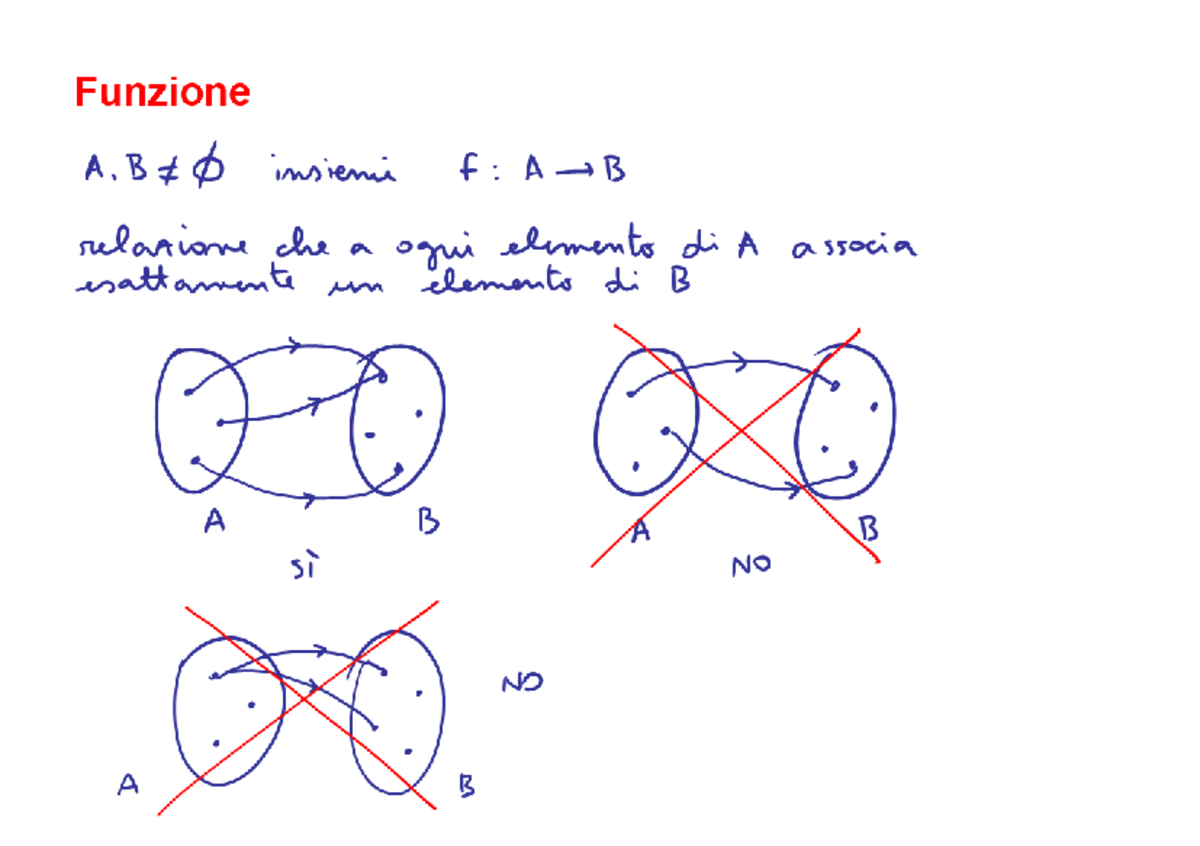 Funzione
A, B ≠ ∅ insiemi f : A → B
relazione che a ogni elemento di A associa
esattamente un elemento di B
A B A B
SÌ NO
NO
A B